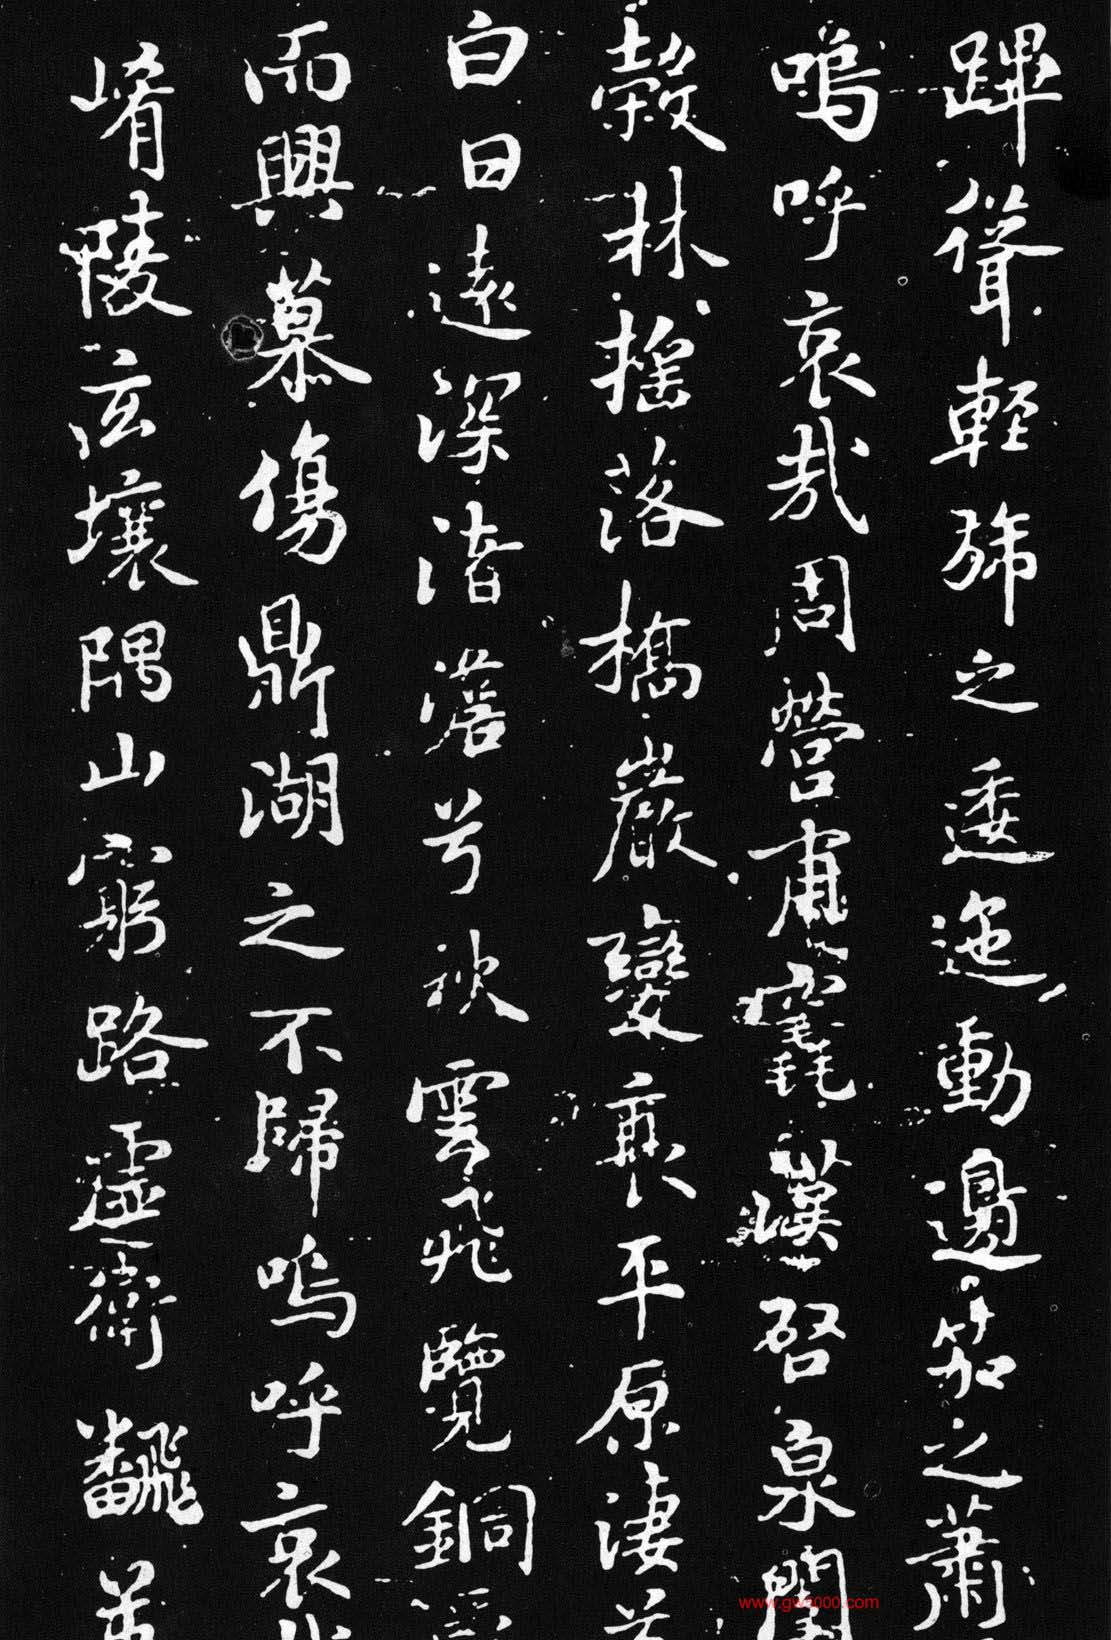 蹕聲輕旆之逶迤動邊笳之蕭
嗚呼哀哉周營甫竁漢啓泉闈
穀林搖落橋巖變衰平原淒兮
白日遠深渚澹兮秋雲飛覽銅
而興慕傷鼎湖之不歸嗚呼哀哉
崤陵玄壤隅山窮路虛衛飜
www.gw3000.com